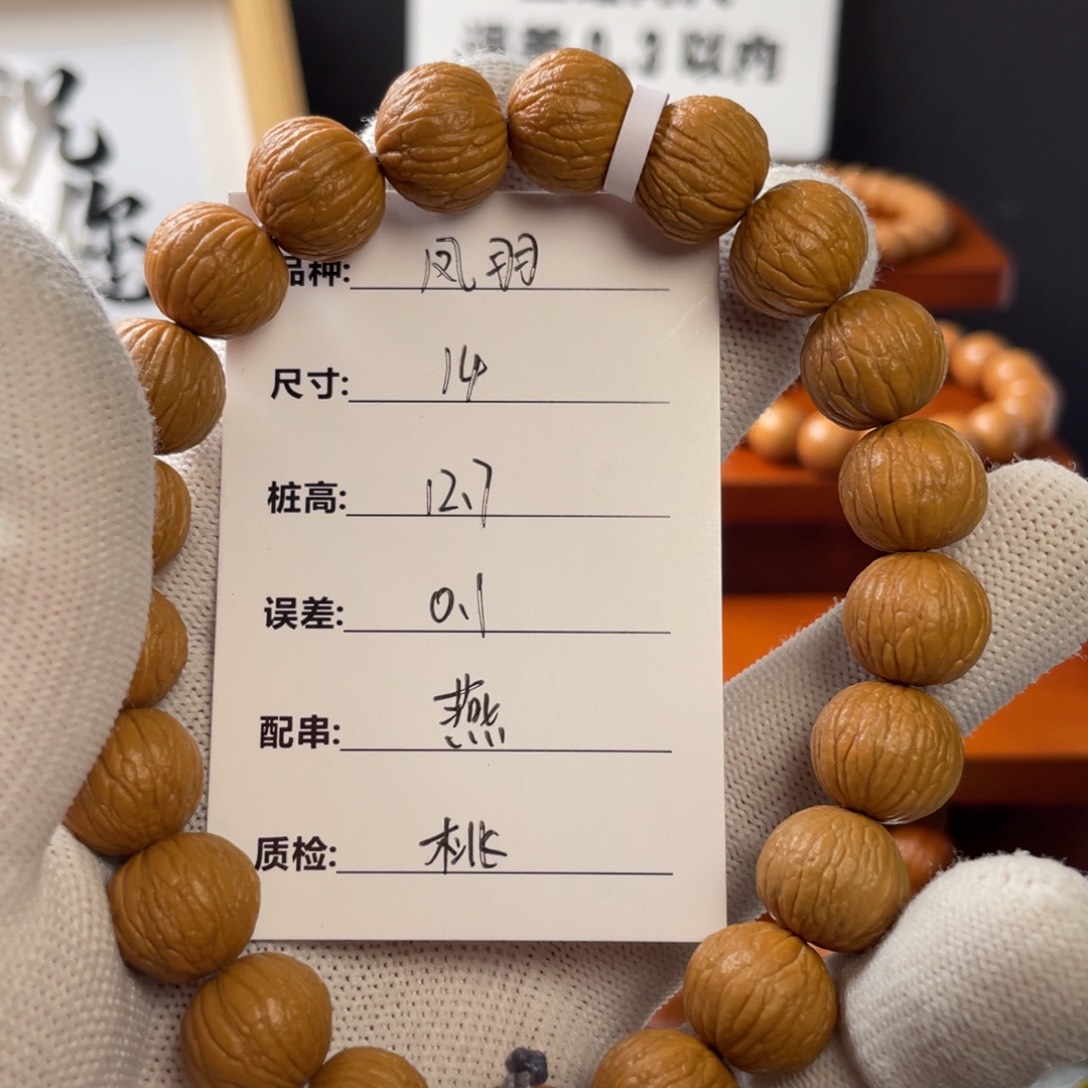 误差0.3以内
品种: 凤羽
尺寸: 14
桩高: 12.7
误差: 0.1
配串: 燕
质检: 桃